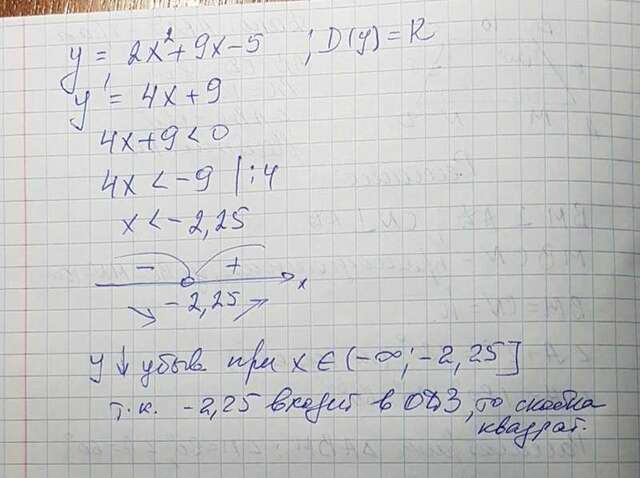 y = 2x² + 9x - 5 ; D(y) = R
y' = 4x + 9
4x + 9 < 0
4x < -9 | : 4
x < -2,25
- + x
-2,25
y ↓ убыв при x ∈ (-∞; -2,25]
т.к. -2,25 входит в ОДЗ, то скобка
квадрат.